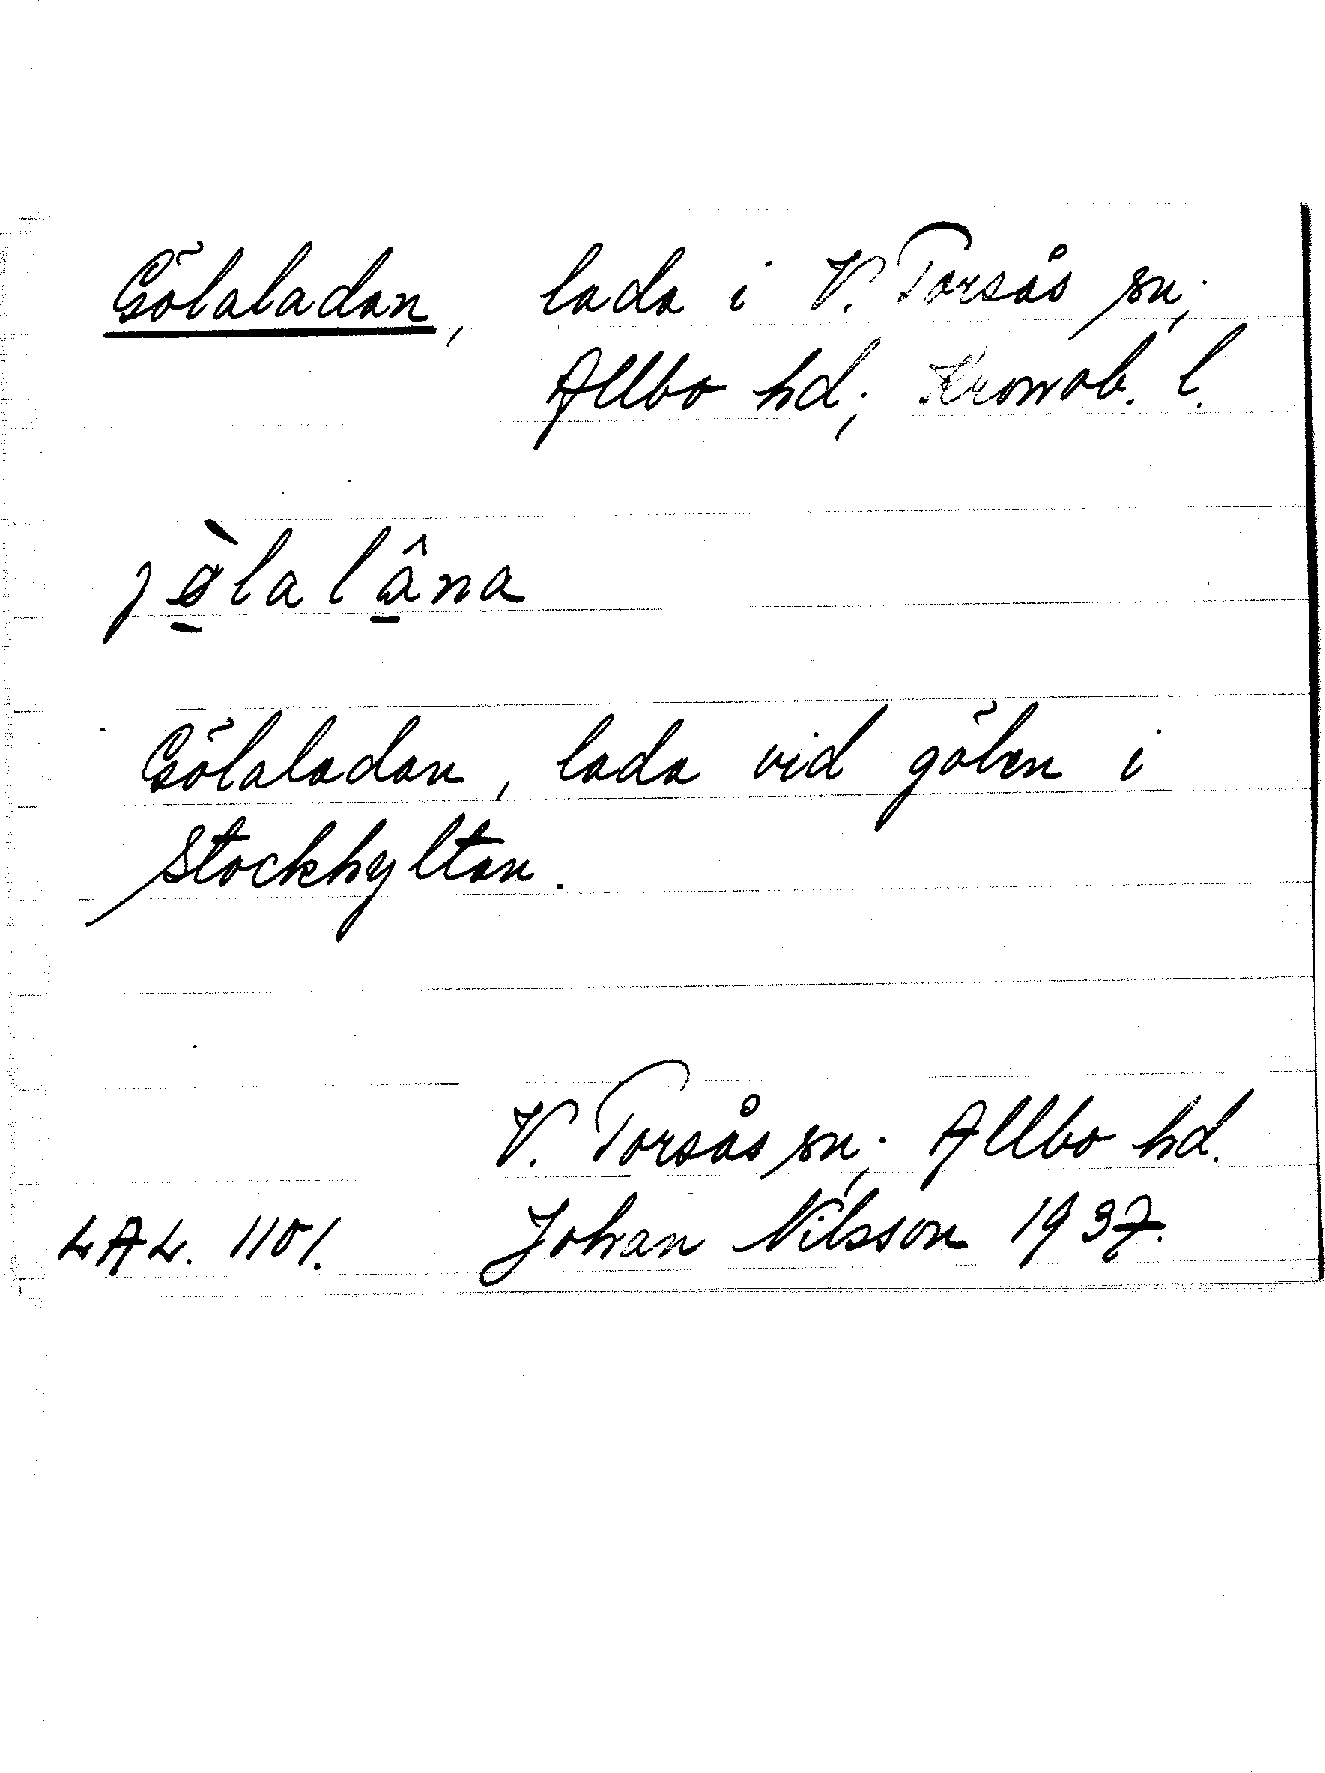 Gölaladan, lada i V. Torsås sn;
Allbo hd; Kronob. l.
jø̀lalâna
Gölaladan, lada vid gölen i
Stockhyltan.
V. Torsås sn; Allbo hd.
LAL. 1101. Johan Nilsson 1937.